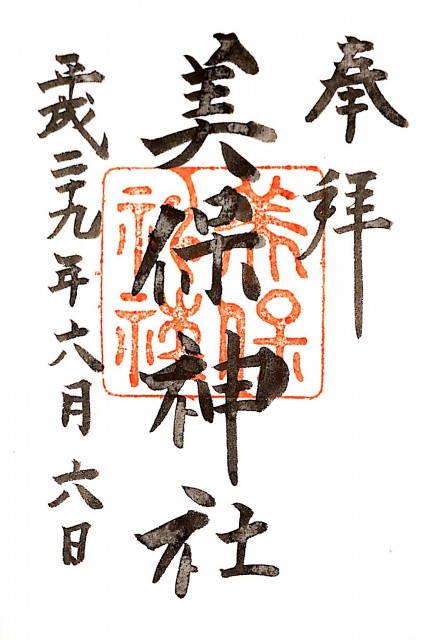 奉拝
美保神社
美保神社
平成二十九年六月六日